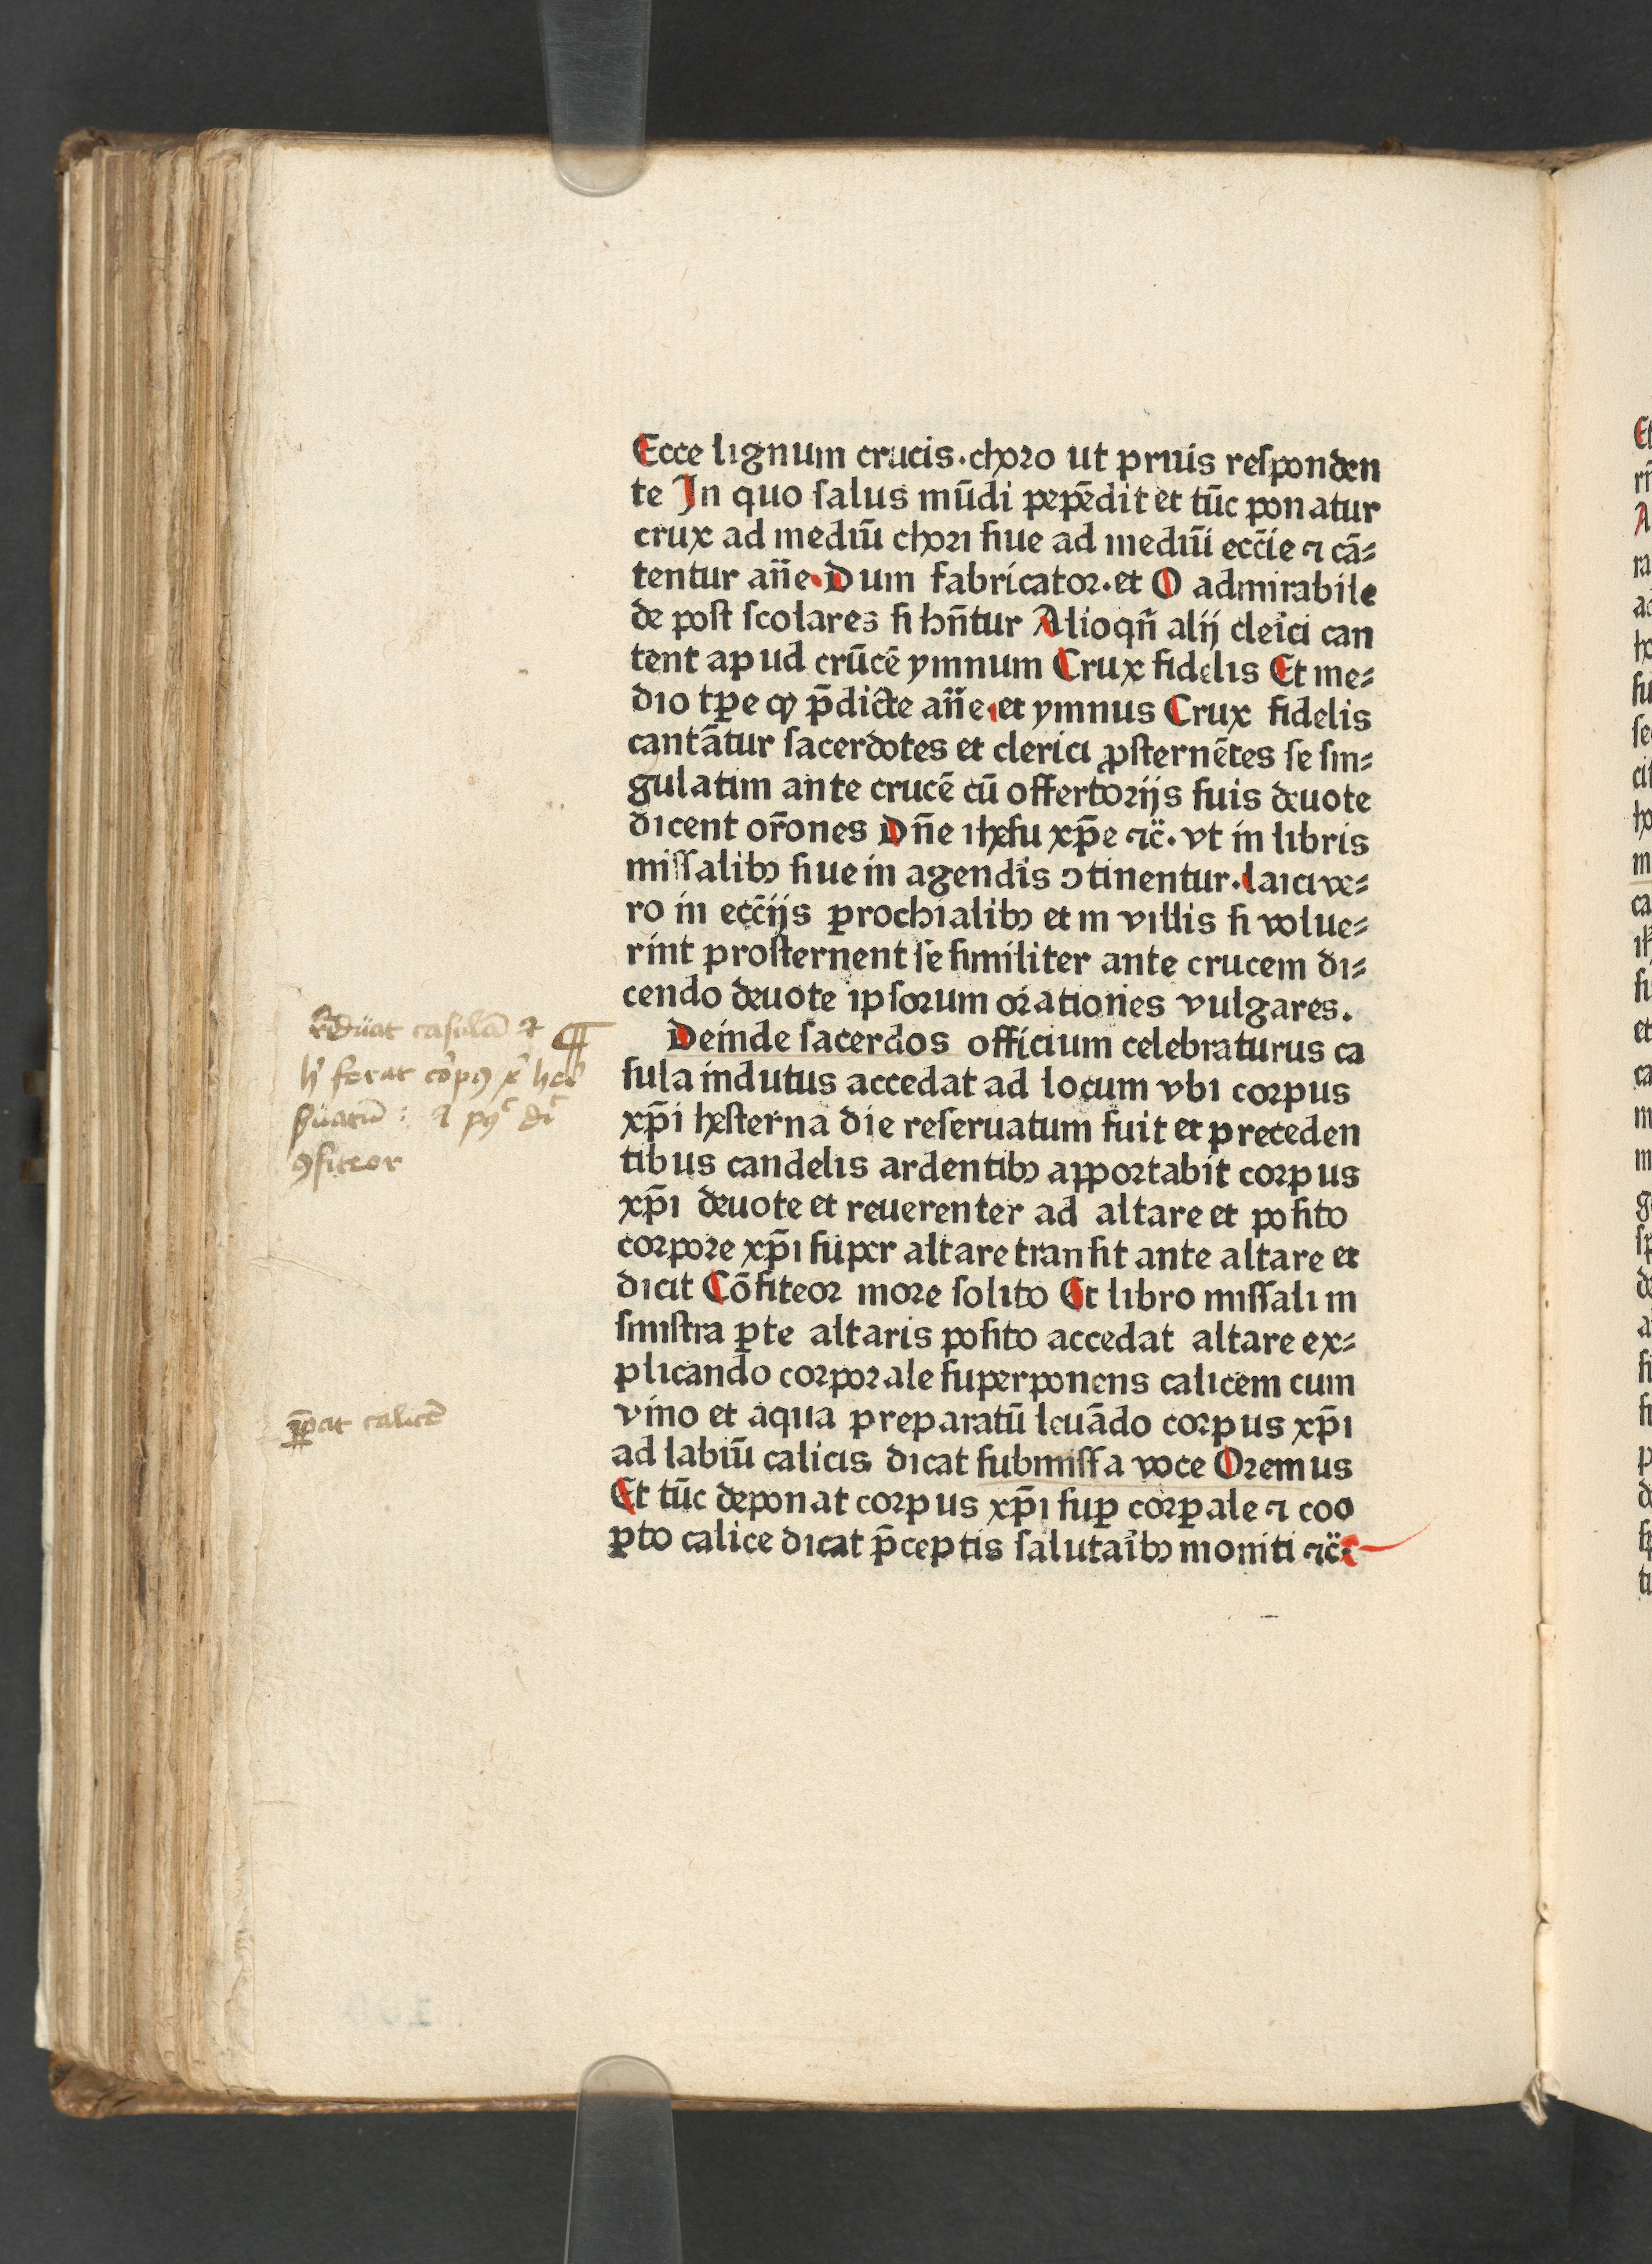 Ecce lignum crucis.choro ut prius responden
te In quo salus mūdi pepēdit et tūc ponatur
crux ad mediū chori siue ad mediū ecc̄ie ⁊ cā⸗
tentur an̄e.Dum fabricator.et O admirabile
de post scolares si hn̄tur Alioqn̄ alij cleici can
tent apud crūcē ymnum Crux fidelis Et me⸗
dio tꝑe ꝙ p̄dicte an̄e et ymnus Crux fidelis
cantātur sacerdotes et clerici ꝓsternētes se sin⸗
gulatim ante crucē cū offertorijs suis deuote
dicent or̄ones Dn̄e ihesu xp̄e ⁊c̄. vt in libris
missalibꝫ siue in agendis ↄtinentur.laici ve⸗
ro in ecc̄ijs ꝑrochialibꝫ et in villis si volue⸗
rint prosternent se similiter ante crucem di⸗
cendo deuote ipsorum orationes vulgares.
Deinde sacerdos officium celebraturus ca
sula indutus accedat ad locum vbi corpus
xp̄i hesterna die reseruatum fuit et preceden
tibus candelis ardentibꝫ apportabit corpus
xp̄i deuote et reuerenter ad altare et posito
corpore xp̄i super altare transit ante altare et
dicit Cōfiteor more solito Et libro missali in
sinistra ꝑte altaris posito accedat altare ex⸗
plicando corporale superponens calicem cum
vino et aqua preparatū leuādo corpus xp̄i
ad labiū calicis dicat submissa voce Oremus
Et tūc deponat corpus xp̄i suꝑ corꝑale ⁊ coo
ꝑto calice dicat p̄ceptis salutaibꝫ moniti ⁊c̄.
casulā ⁊ ¶
ferat
ꝯfiteor
calicē